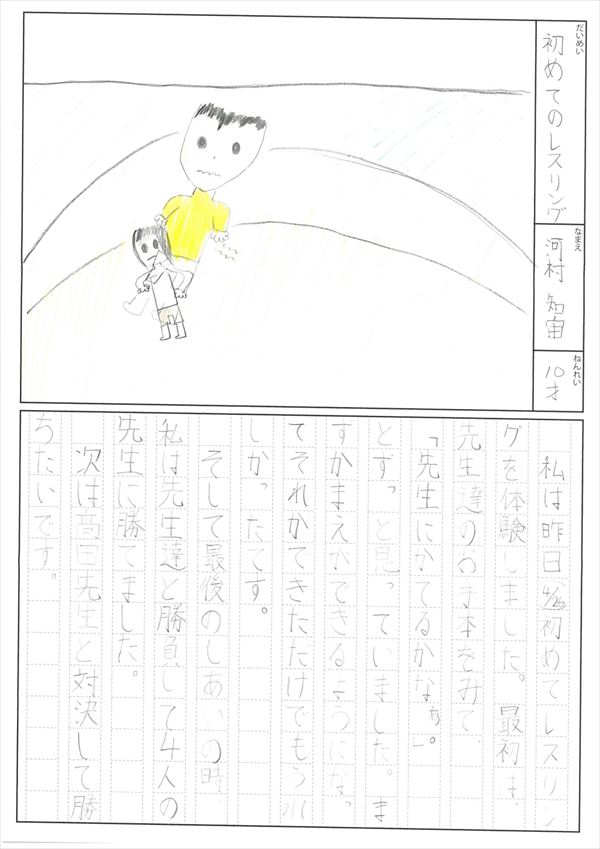 だいめい
初めてのレスリング
なまえ
河村 知宙
ねんれい
10才
私は昨日4/26初めてレスリン
グを体験しました。最初は、
先生達のの手本をみて、
「先生にかてるかなぁ」。
とずっと見っていました。ま
ずかまえができるようになっ
てそれかできただけでもう川
しかったてす。
そして最後のしあいの時、
私は先生達と勝負して4人の
先生に勝てました。
次は高田先生と対決して勝
ちたいです。